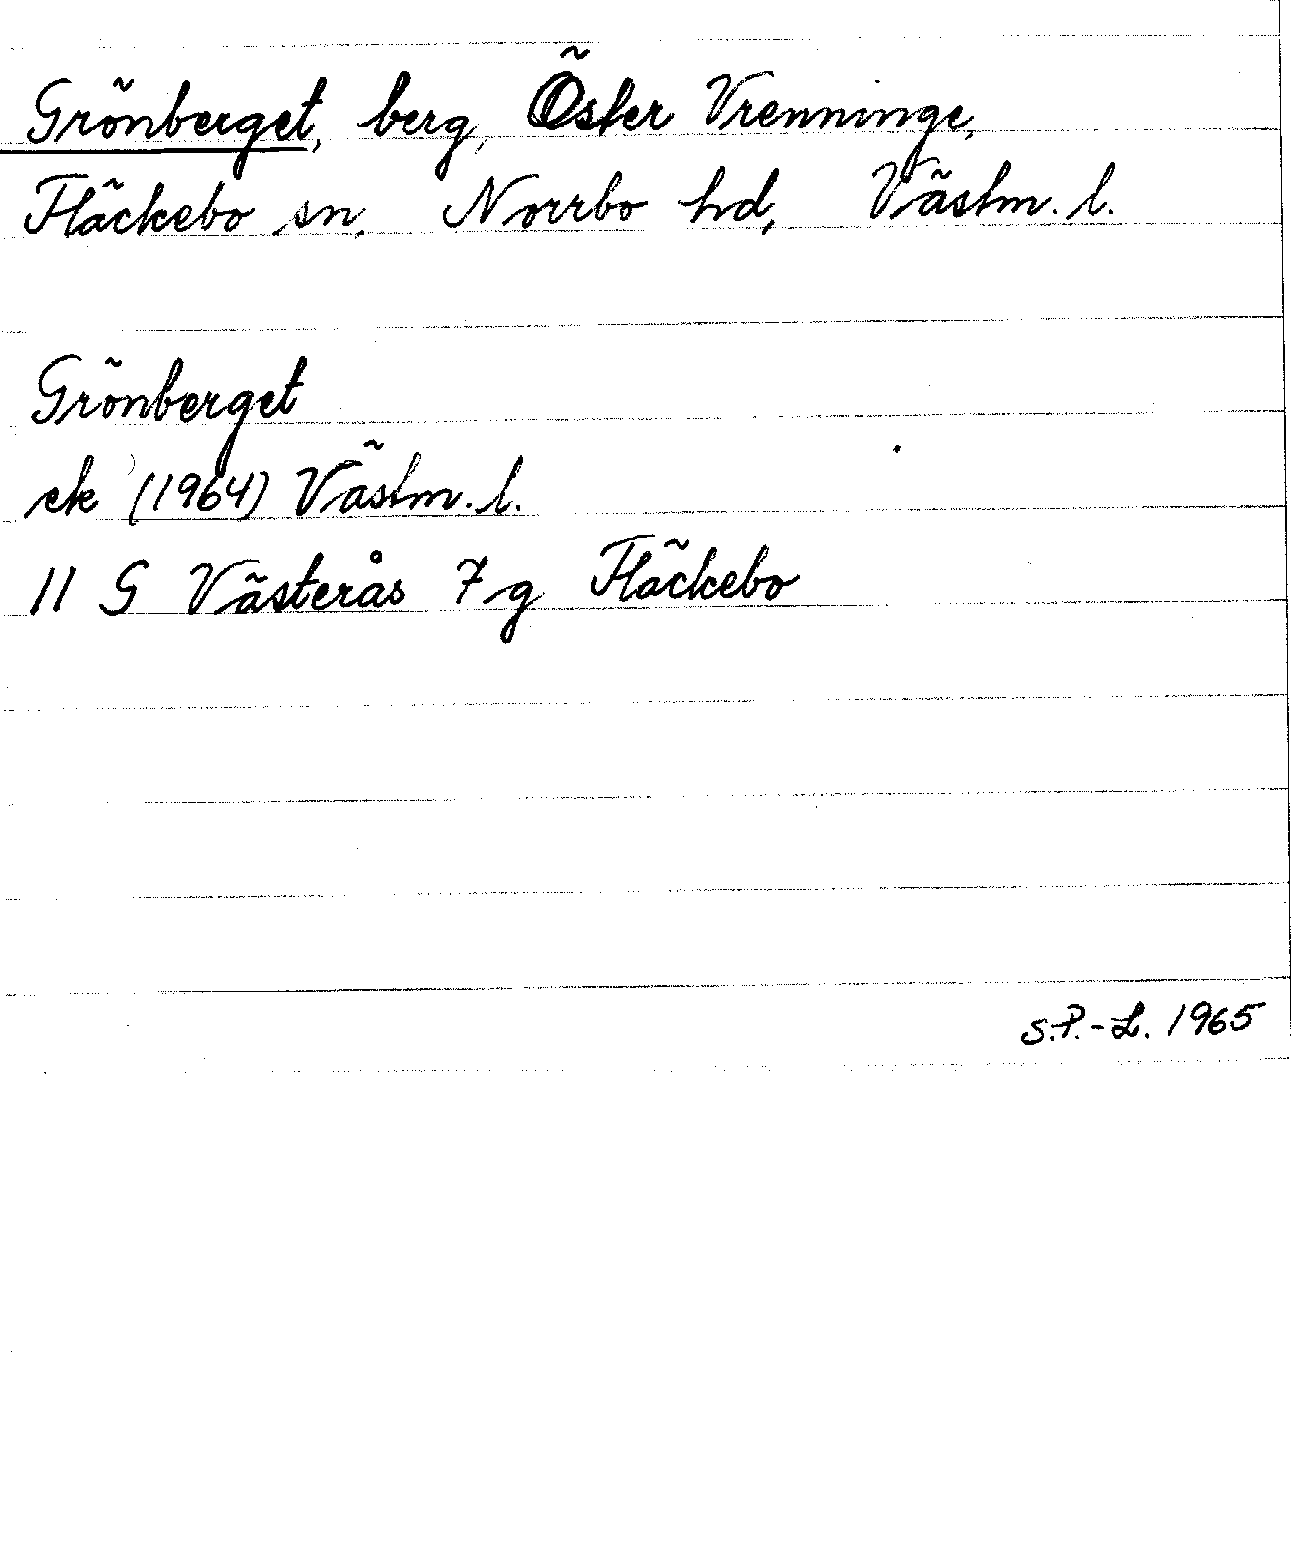 Grönberget, berg, Öster Vrenninge,
Fläckebo sn, Norrbo hd, Västm. l.
Grönberget
ek (1964) Västm. l.
11 G Västerås 7 g Fläckebo
S.P.-L. 1965